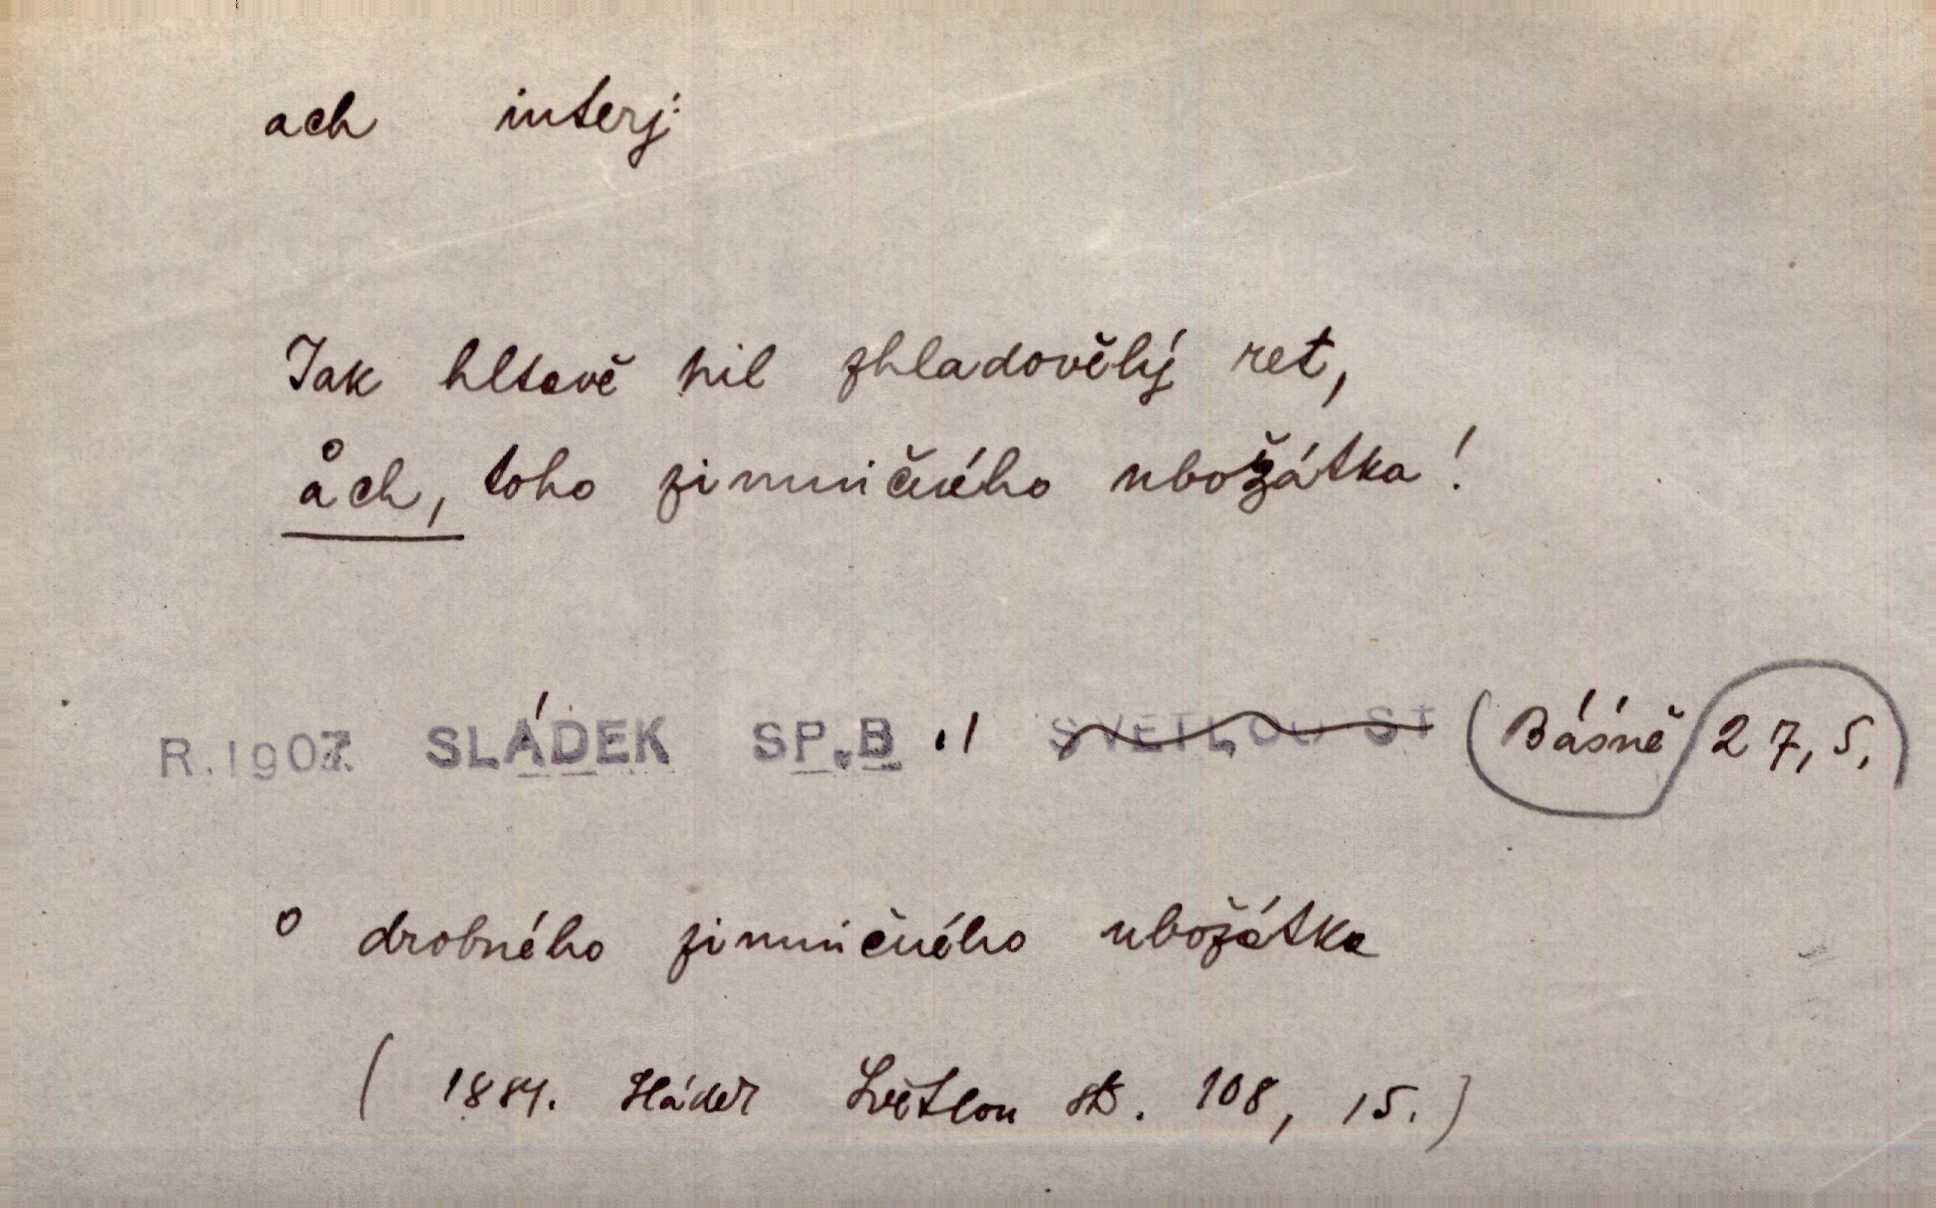 ach interj.
Jak hltavě pil zhladovělý ret,
°ach, toho zimničného ubožátka!
R.1907. SLÁDEK SP.B.I SVĚTLOU ST (Básně) 27,5.
° drobného zimničného ubožátka
(1884. Sládek Světlou st. 108, 15.)